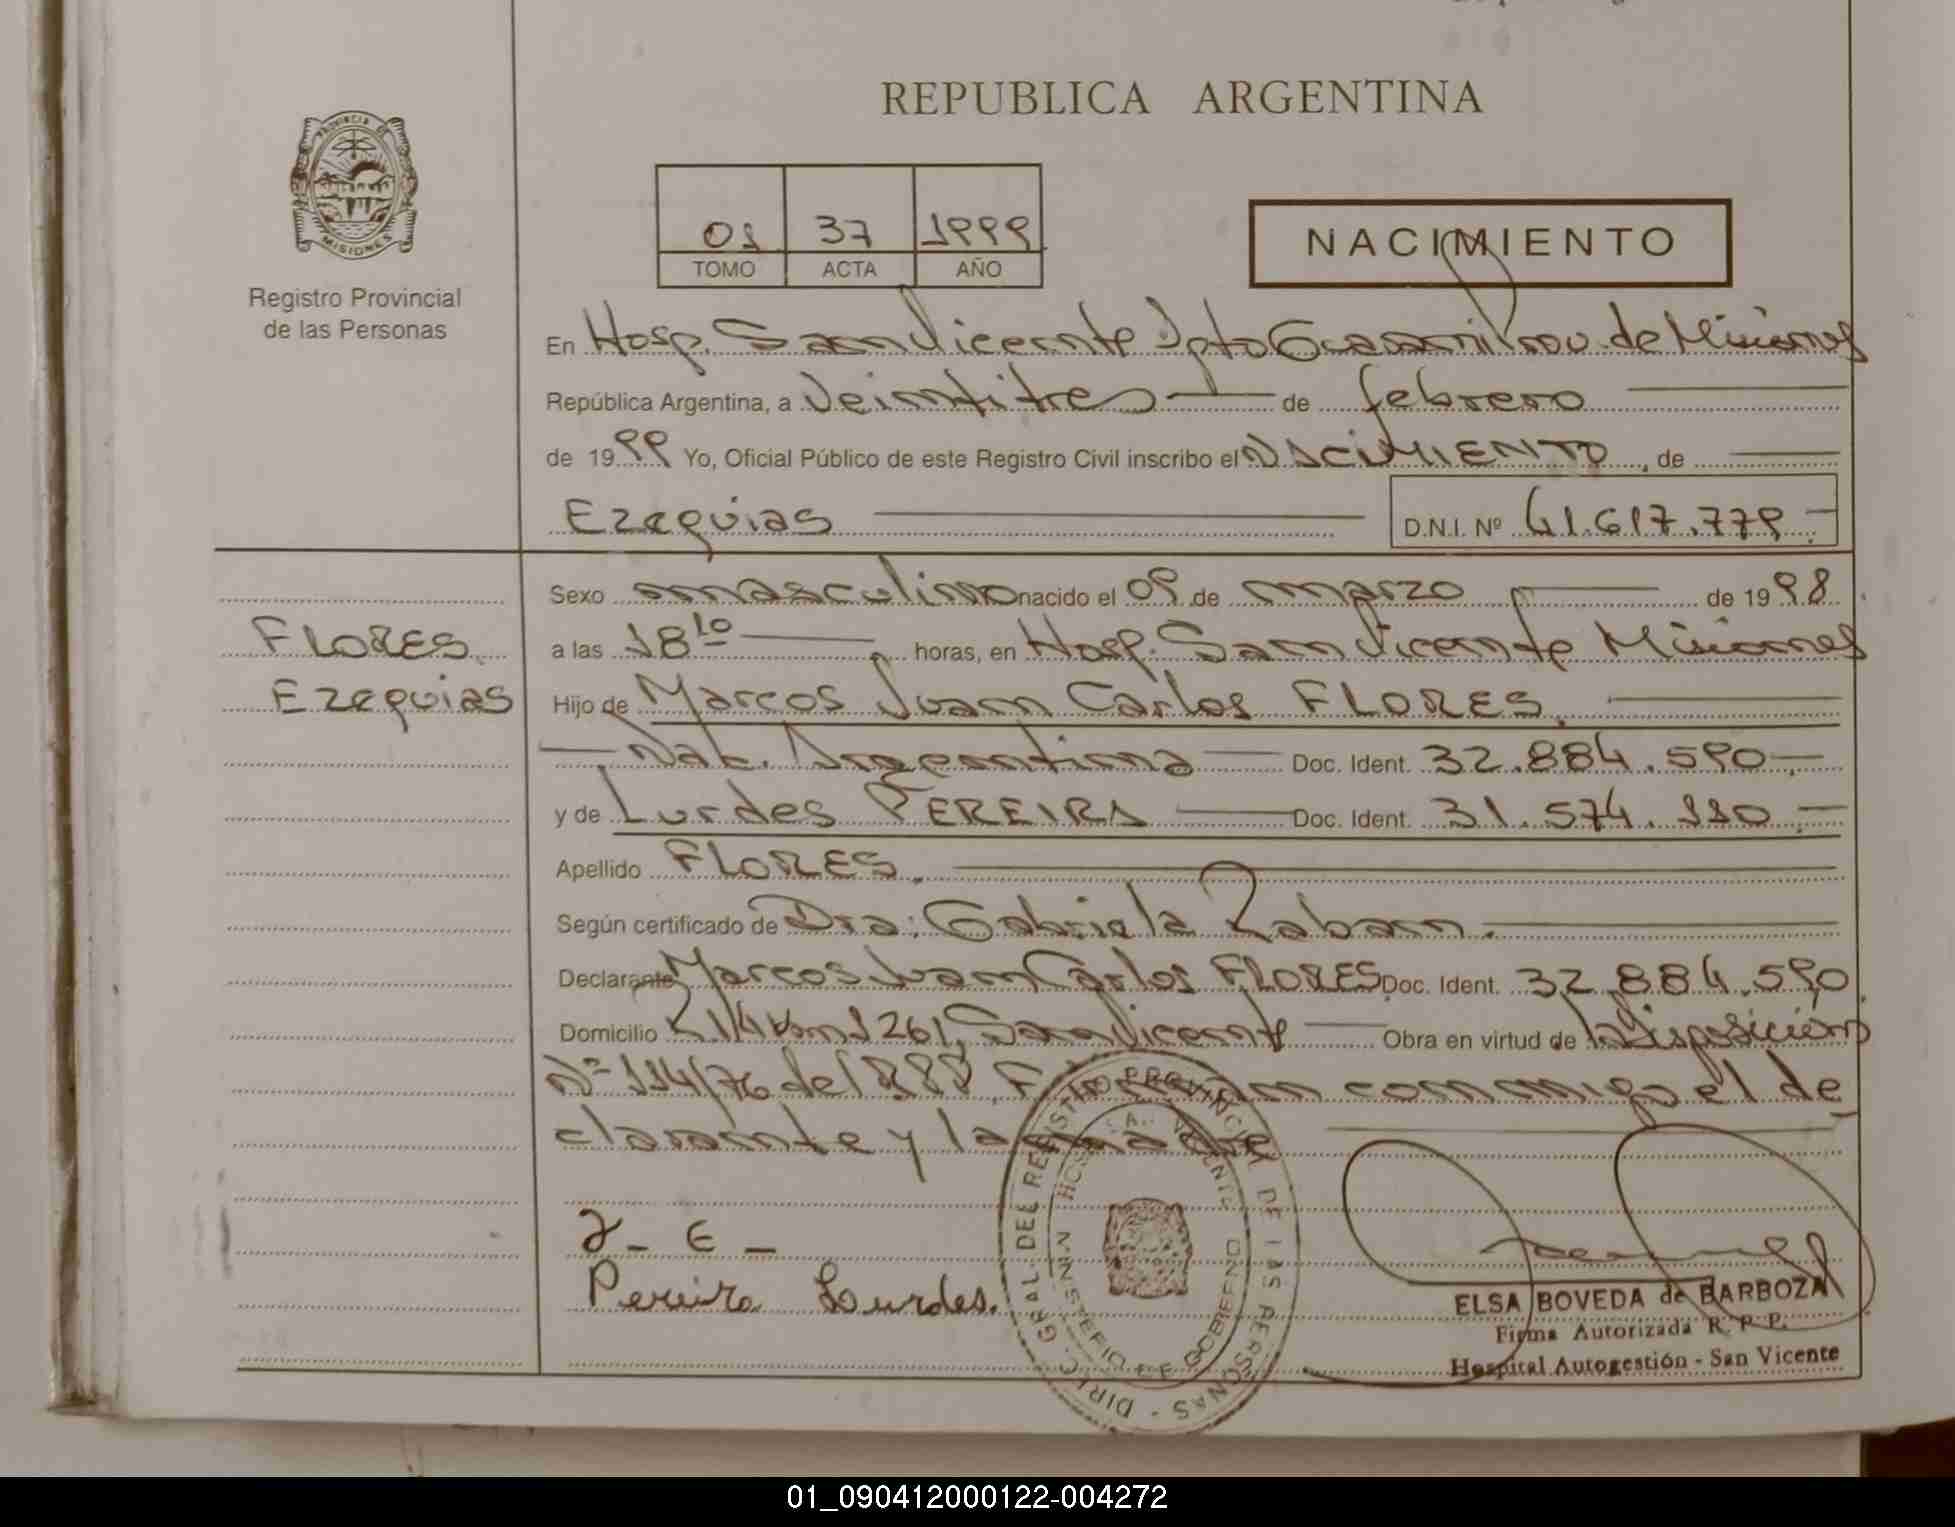 REPUBLICA ARGENTINA
PROVINCIA DE
MISIONES
Registro Provincial
de las Personas
01 37 1999
TOMO ACTA AÑO
NACIMIENTO
En Hosp. San Vicente Dpto Guarani Prov. de Misiones
República Argentina, a Veintitres de febrero
de 1999 Yo, Oficial Público de este Registro Civil inscribo el NACIMIENTO, de
Ezequias D.N.I. Nº 41.617.779
Sexo masculino nacido el 09 de marzo de 1998
FLORES
Ezequias
a las 18 10 horas, en Hosp. San Vicente Misiones
Hijo de Marcos Juan Carlos FLORES.
Nac. Argentina Doc. Ident. 32.884.590
y de Lurdes PEREIRA Doc. Ident. 31.574.110
Apellido FLORES.
Según certificado de Dra: Gabriela Zaban.
Declarante Marcos Juan Carlos FLORES Doc. Ident. 32.884.590
Domicilio 14 km 1261, San Vicente Obra en virtud de la Disposición
Nº 114/76 del conmigo el de
clarante y la madre
Pereira Lourdes.
DIRIC. GRAL. DEL REGISTRO PROVINCIAL DE LAS PERSONAS
MINISTERIO DE GOBIERNO
ELSA BOVEDA de BARBOZA
Firma Autorizada R. P. P.
Hospital Autogestión - San Vicente
01_090412000122-004272